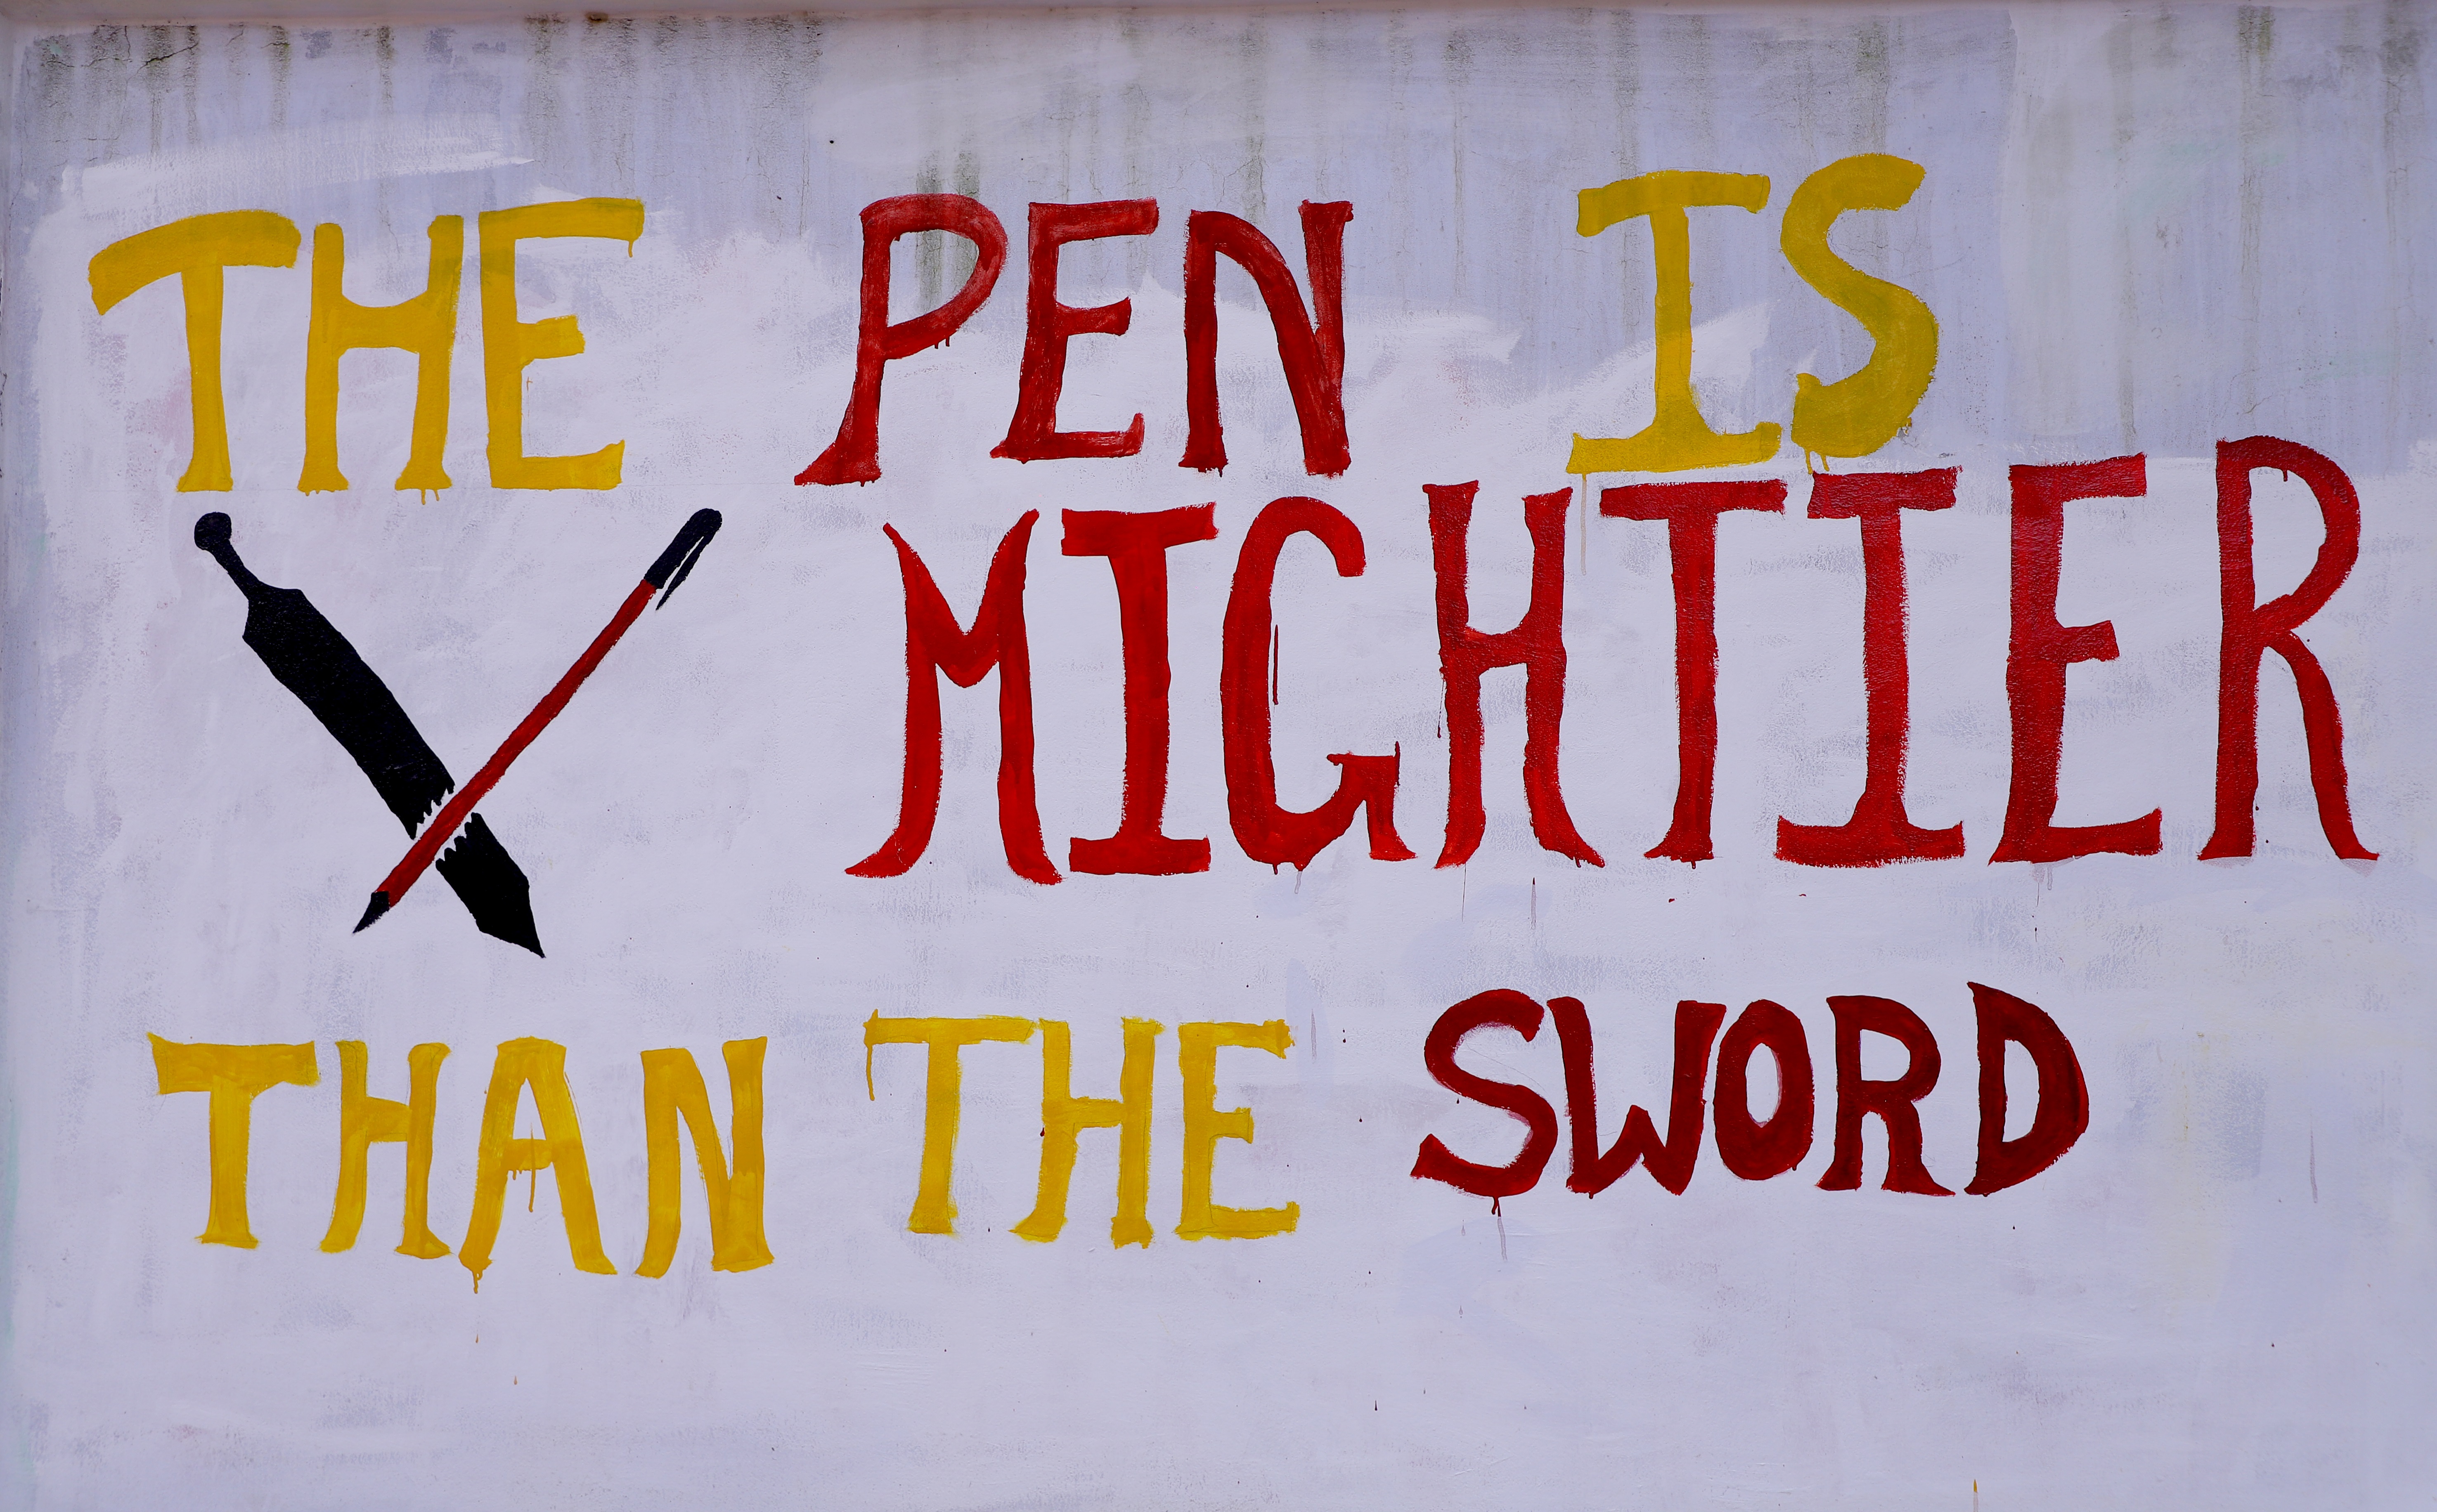 THE PEN IS
MIGHTIER
THAN THE SWORD